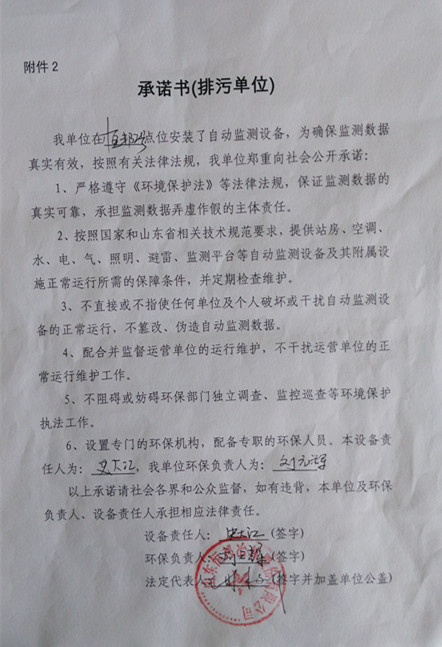 附件2
承诺书(排污单位)
我单位在点位安装了自动监测设备，为确保监测数据
真实有效，按照有关法律法规，我单位郑重向社会公开承诺：
1、严格遵守《环境保护法》等法律法规，保证监测数据的
真实可靠，承担监测数据弄虚作假的主体责任。
2、按照国家和山东省相关技术规范要求，提供站房、空调、
水、电、气、照明、避雷、监测平台等自动监测设备及其附属设
施正常运行所需的保障条件，并定期检查维护。
3、不直接或不指使任何单位及个人破坏或干扰自动监测设
备的正常运行，不篡改、伪造自动监测数据。
4、配合并监督运营单位的运行维护，不干扰运营单位的正
常运行维护工作。
5、不阻碍或妨碍环保部门独立调查、监控巡查等环境保护
执法工作。
6、设置专门的环保机构，配备专职的环保人员。本设备责
任人为：，我单位环保负责人为：
以上承诺请社会各界和公众监督，如有违背，本单位及环保
负责人、设备责任人承担相应法律责任。
设备责任人：(签字)
环保负责人：(签字)
法定代表人(签字并加盖单位公盖)